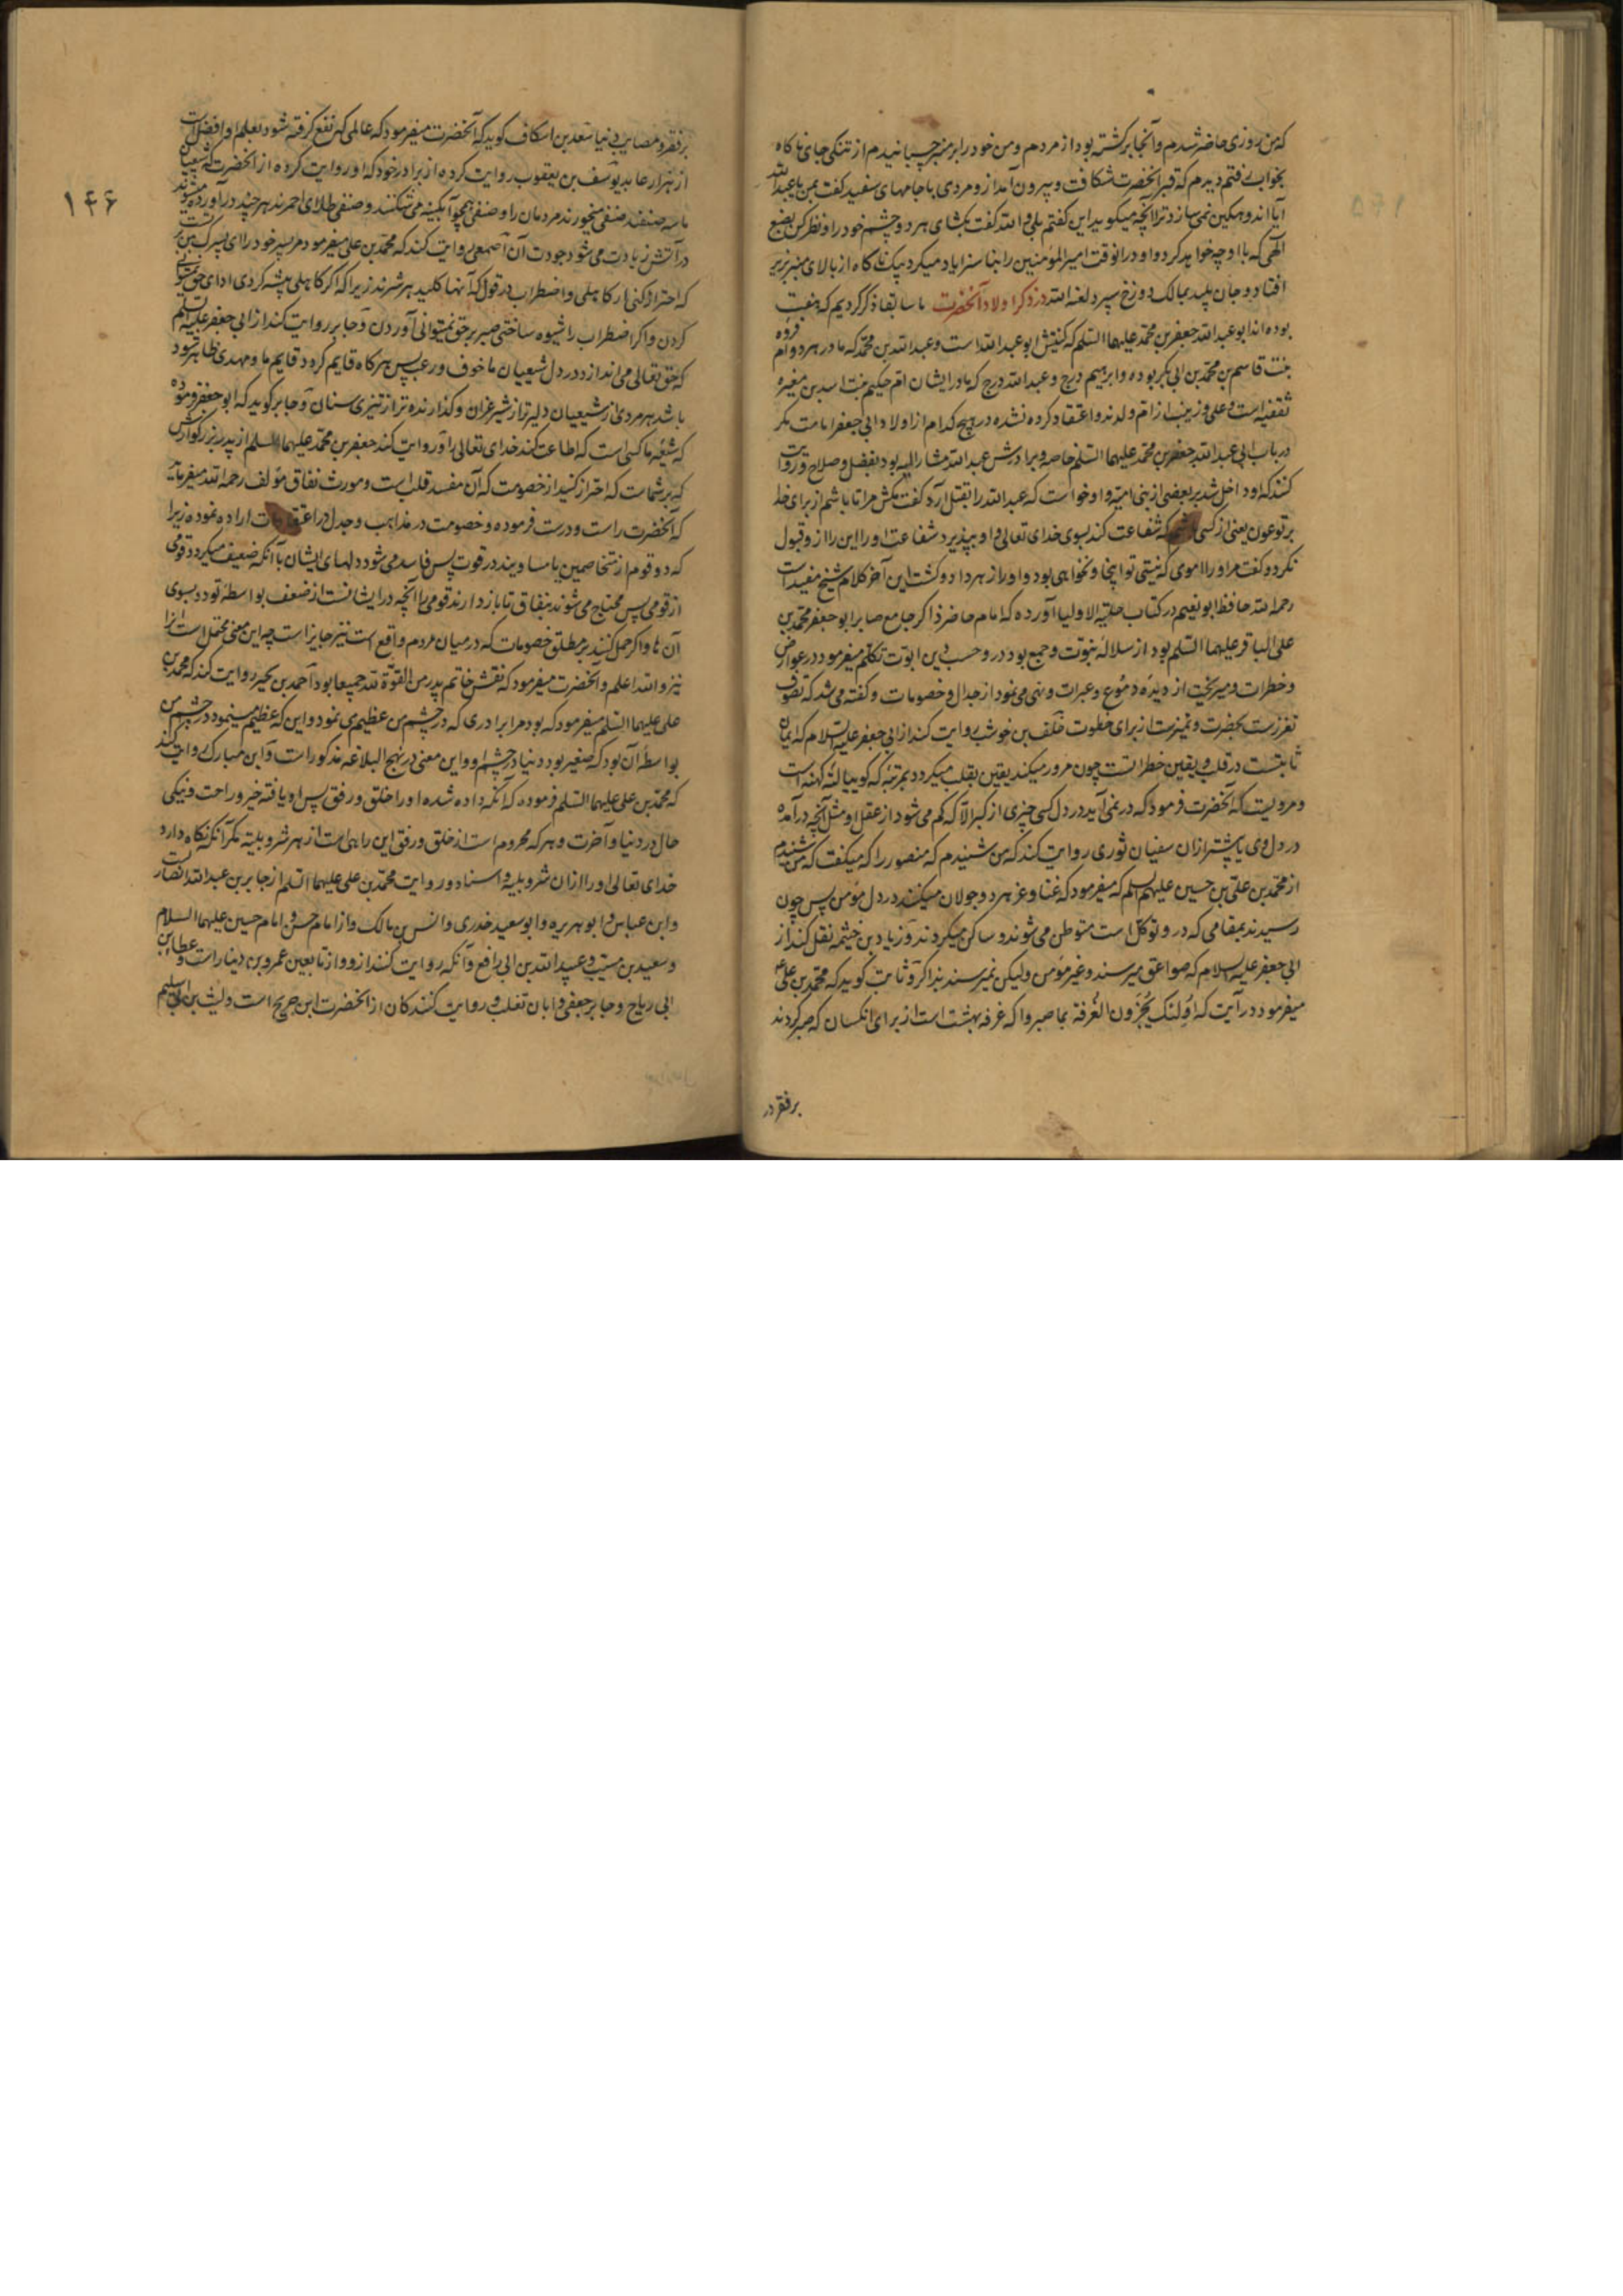 که من روزی حاضر شدم و آنجا برکشته بود از مردم و من خود را بر منبر چسبانیدم از تنکی جای ناکاه
بخواب رفتم دیدم که قبر آنحضرت شکافت و بیرون آمد ازو مردی با جامهای سفید کفت بمن یا عبدالله
آیا اندوهکین نمی سازد ترا آنچه میکوید این کفتم بلی والله کفت بکشای هر دو چشم خود را و نظر کن بصنع
الهی که با او چه خواهد کرد و او در انوقت امیر المؤمنین را بنا سزا یاد میکرد بیک ناکاه از بالای منبر بزیر
افتاد و جان پلید بمالک دوزخ سپرد لعنه الله در ذکر اولاد آنحضرت ما سابقا ذکر کردیم که هفت
بوده اند ابو عبدالله جعفر بن محمد علیهما السلم که کنیتش ابو عبدالله است و عبدالله بن محمد که مادر هر دو ام فروه
بنت قاسم بن محمد بن ابی بکر بوده و ابراهیم درج و عبدالله درج که مادر ایشان ام حکیم بنت اسد بن مغیره
ثقفیه است و علی و زینب از ام ولدند و اعتقاد کرده نشده در هیچ کدام از اولاد ابی جعفر امامت مکر
در باب ابی عبدالله جعفر بن محمد علیهما السلم خاصه و برادرش عبدالله مشار الیه بود بفضل و صلاح و روایت
کنند که او داخل شد بر بعضی از بنی امیه و او خواست که عبدالله را بقتل آرد کفت مکش مرا تا باشم از برای خدا
بر تو عون یعنی از کسی که شفاعت کند بسوی خدای تعالی و او بپذیرد شفاعت او را این را ازو قبول
نکرد و کفت مر او را اموی که نیستی تو اینجا و نخواهی بود و او را زهر داد و کشت این آخر کلام شیخ مفید است
رحمه الله حافظ ابو نعیم در کتاب حلیة الاولیا آورده که امام حاضر ذاکر جامع صابر ابو جعفر محمد بن
علی الباقر علیهما السلم بود از سلاله نبوت و جمع بود درو حسب دین ابوت تکلم میفرمود در عوارض
و خطرات و میریخت از دیده دموع و عبرات و نهی می نمود از جدال و خصومات و کفته می شد که تصوف
تعززست بحضرت و تمیزست از برای خلوت خلف بن حوشب روایت کند از ابی جعفر علیه السلام که ایمان
ثابتست در قلب و یقین خطراتست چون مرور میکند یقین بقلب میکردد بمرتبه که کوییا لته کهنه است
و مرویست که آنحضرت فرمود که در نمی آید در دل کسی چیزی از کبر الا که کم می شود از عقل او مثل آنچه در آمده
در دل وی یا پشتر ازان سفیان ثوری روایت کند که من شنیدم که منصور را که میکفت که من شنیدم
از محمد بن علی بن حسین علیهم السلم که میفرمود که غنا و عز هر دو جولان میکنند در دل مؤمن پس چون
رسیدند بمقامی که درو توکل است متوطن می شوند و ساکن میکردند و زیاد بن خیثمه نقل کند از
ابی جعفر علیه السلام که صواعق میرسند و غیر مؤمن ولیکن نمیرسند بذاکر و ثابت کوید که محمد بن علی ع
میفرمود در آیت که اولئک یجزون الغرفة بما صبروا که غرفه بهشت است از برای انکسان که صبر کردند
بر فقر در
۱۴۶
بر فقر و مصایب دنیا سعد بن اسکاف کوید که آنحضرت میفرمود که عالمی که نفع کرفته شود بعلم او افضل است
از هزار عابد یوسف بن یعقوب روایت کرده از برادر خود که او روایت کرده از آنحضرت که شیعیان
ما سه صنفند صنفی میخورند مردمان را و صنفی همچو آبکینه می شکنند و صنفی طلای احمرند هر چند در آورده میشوند
در آتش زیادت می شود جودت آن اصمعی روایت کند که محمد بن علی میفرمود مر پسر خود را ای پسرک من
که احتراز کنی از کاهلی و اضطراب در قول که آنها کلید هر شرند زیرا که اکر کاهلی پیشه کردی ادای حق نتوانی
کردن و اکر اضطراب را شیوه ساختی صبر بر حق نمیتوانی آوردن و جابر روایت کند از ابی جعفر علیه السلم
که حق تعالی می اندازد در دل شیعیان ما خوف و رعب پس هر کاه قایم کردد قایم ما و مهدی ظاهر شود
باشد هر مردی از شیعیان دلیرتر از شیر غران و کذارنده تر از تیزی سنان و جابر کوید که ابو جعفر فرموده
که شیعه ما کسی است که اطاعت کند خدای تعالی را و روایت کند جعفر بن محمد علیهما السلم از پدر بزرکوارش
که بر شماست که احتراز کنید از خصومت که آن مفسد قلب است و مورث نفاق مؤلف رحمه الله میفرماید
که آنحضرت راست و درست فرموده و خصومت در مذاهب و جدل در اعتقادات اراده نموده زیرا
که دو قوم از متخاصمین یا مساویند در قوت پس فاسد می شود دلهای ایشان یا آنکه ضعیف میکردد قومی
از قومی پس محتاج می شوند بنفاق تا باز دارند قومی را آنچه در ایشانست از ضعف بواسطه تودد بسوی
آن ها و اکر حمل کنند بر مطلق خصومات که در میان مردم واقع است نیز جایز است چه این معنی محتمل است انرا
نیز والله اعلم و آنحضرت میفرمود که نقش خاتم پدر من القوة لله جمیعا بود احمد بن بحیر روایت کند که محمد بن
علی علیهما السلم میفرمود که بود مرا برادری که در چشم من عظیم می نمود و این که عظیم مینمود در چشم من
بواسطه آن بود که صغیر بود دنیا در چشم او و این معنی در نهج البلاغه مذکور است و ابن مبارک روایت کند
که محمد بن علی علیهما السلم فرموده که آنکه داده شده او را خلق و رفق پس او یافته خیر و راحت و نیکی
حال در دنیا و آخرت و هر که محروم است از خلق و رفق این راهی است از هر شر و بلیه مکر آنکه نکاه دارد
خدای تعالی او را ازان شر و بلیه و اسناد و روایت محمد بن علی علیهما السلم از جابر بن عبدالله انصاریست
و ابن عباس و ابو هریره و ابو سعید خدری و انس بن مالک و از امام حسن و امام حسین علیهما السلام
و سعید بن مسیب و عبیدالله بن ابی رافع و آنکه روایت کنند ازو از تابعین عمرو بن دینار است و عطا بن
ابی رباح و جابر جعفی و ابان تغلب و روایت کنندکان از آنحضرت ابن جریح است و لیث بن ابی سلیم